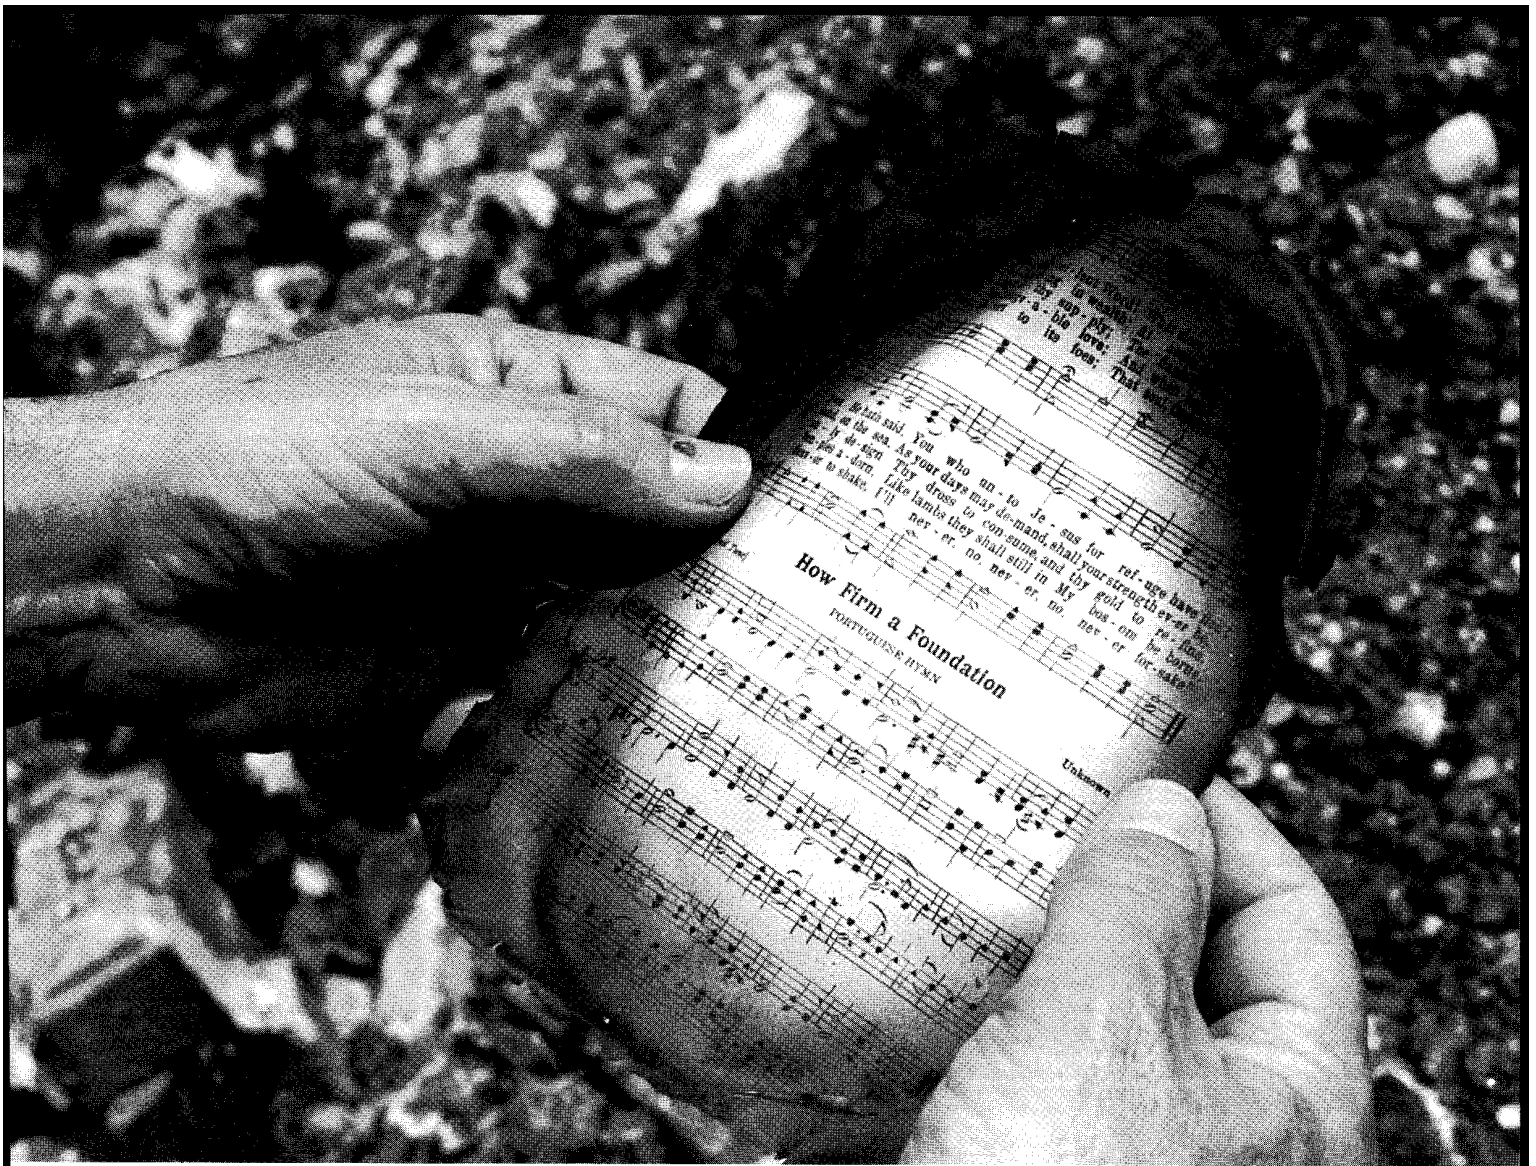 in
thy sup - ply; The
a - ble love; And when
to its foes; That soul
He hath said, You who un - to Je - sus for ref - uge have
on the sea. As your days may de-mand, shall your strength ev-er be.
ly de-sign Thy dross to con-sume, and thy gold to re - fine.
a - dorn, Like lambs they shall still in My bos - om be borne.
to shake, I'll nev - er, no, nev - er, no, nev - er for - sake."
How Firm a Foundation
PORTUGUESE HYMN
Unknown